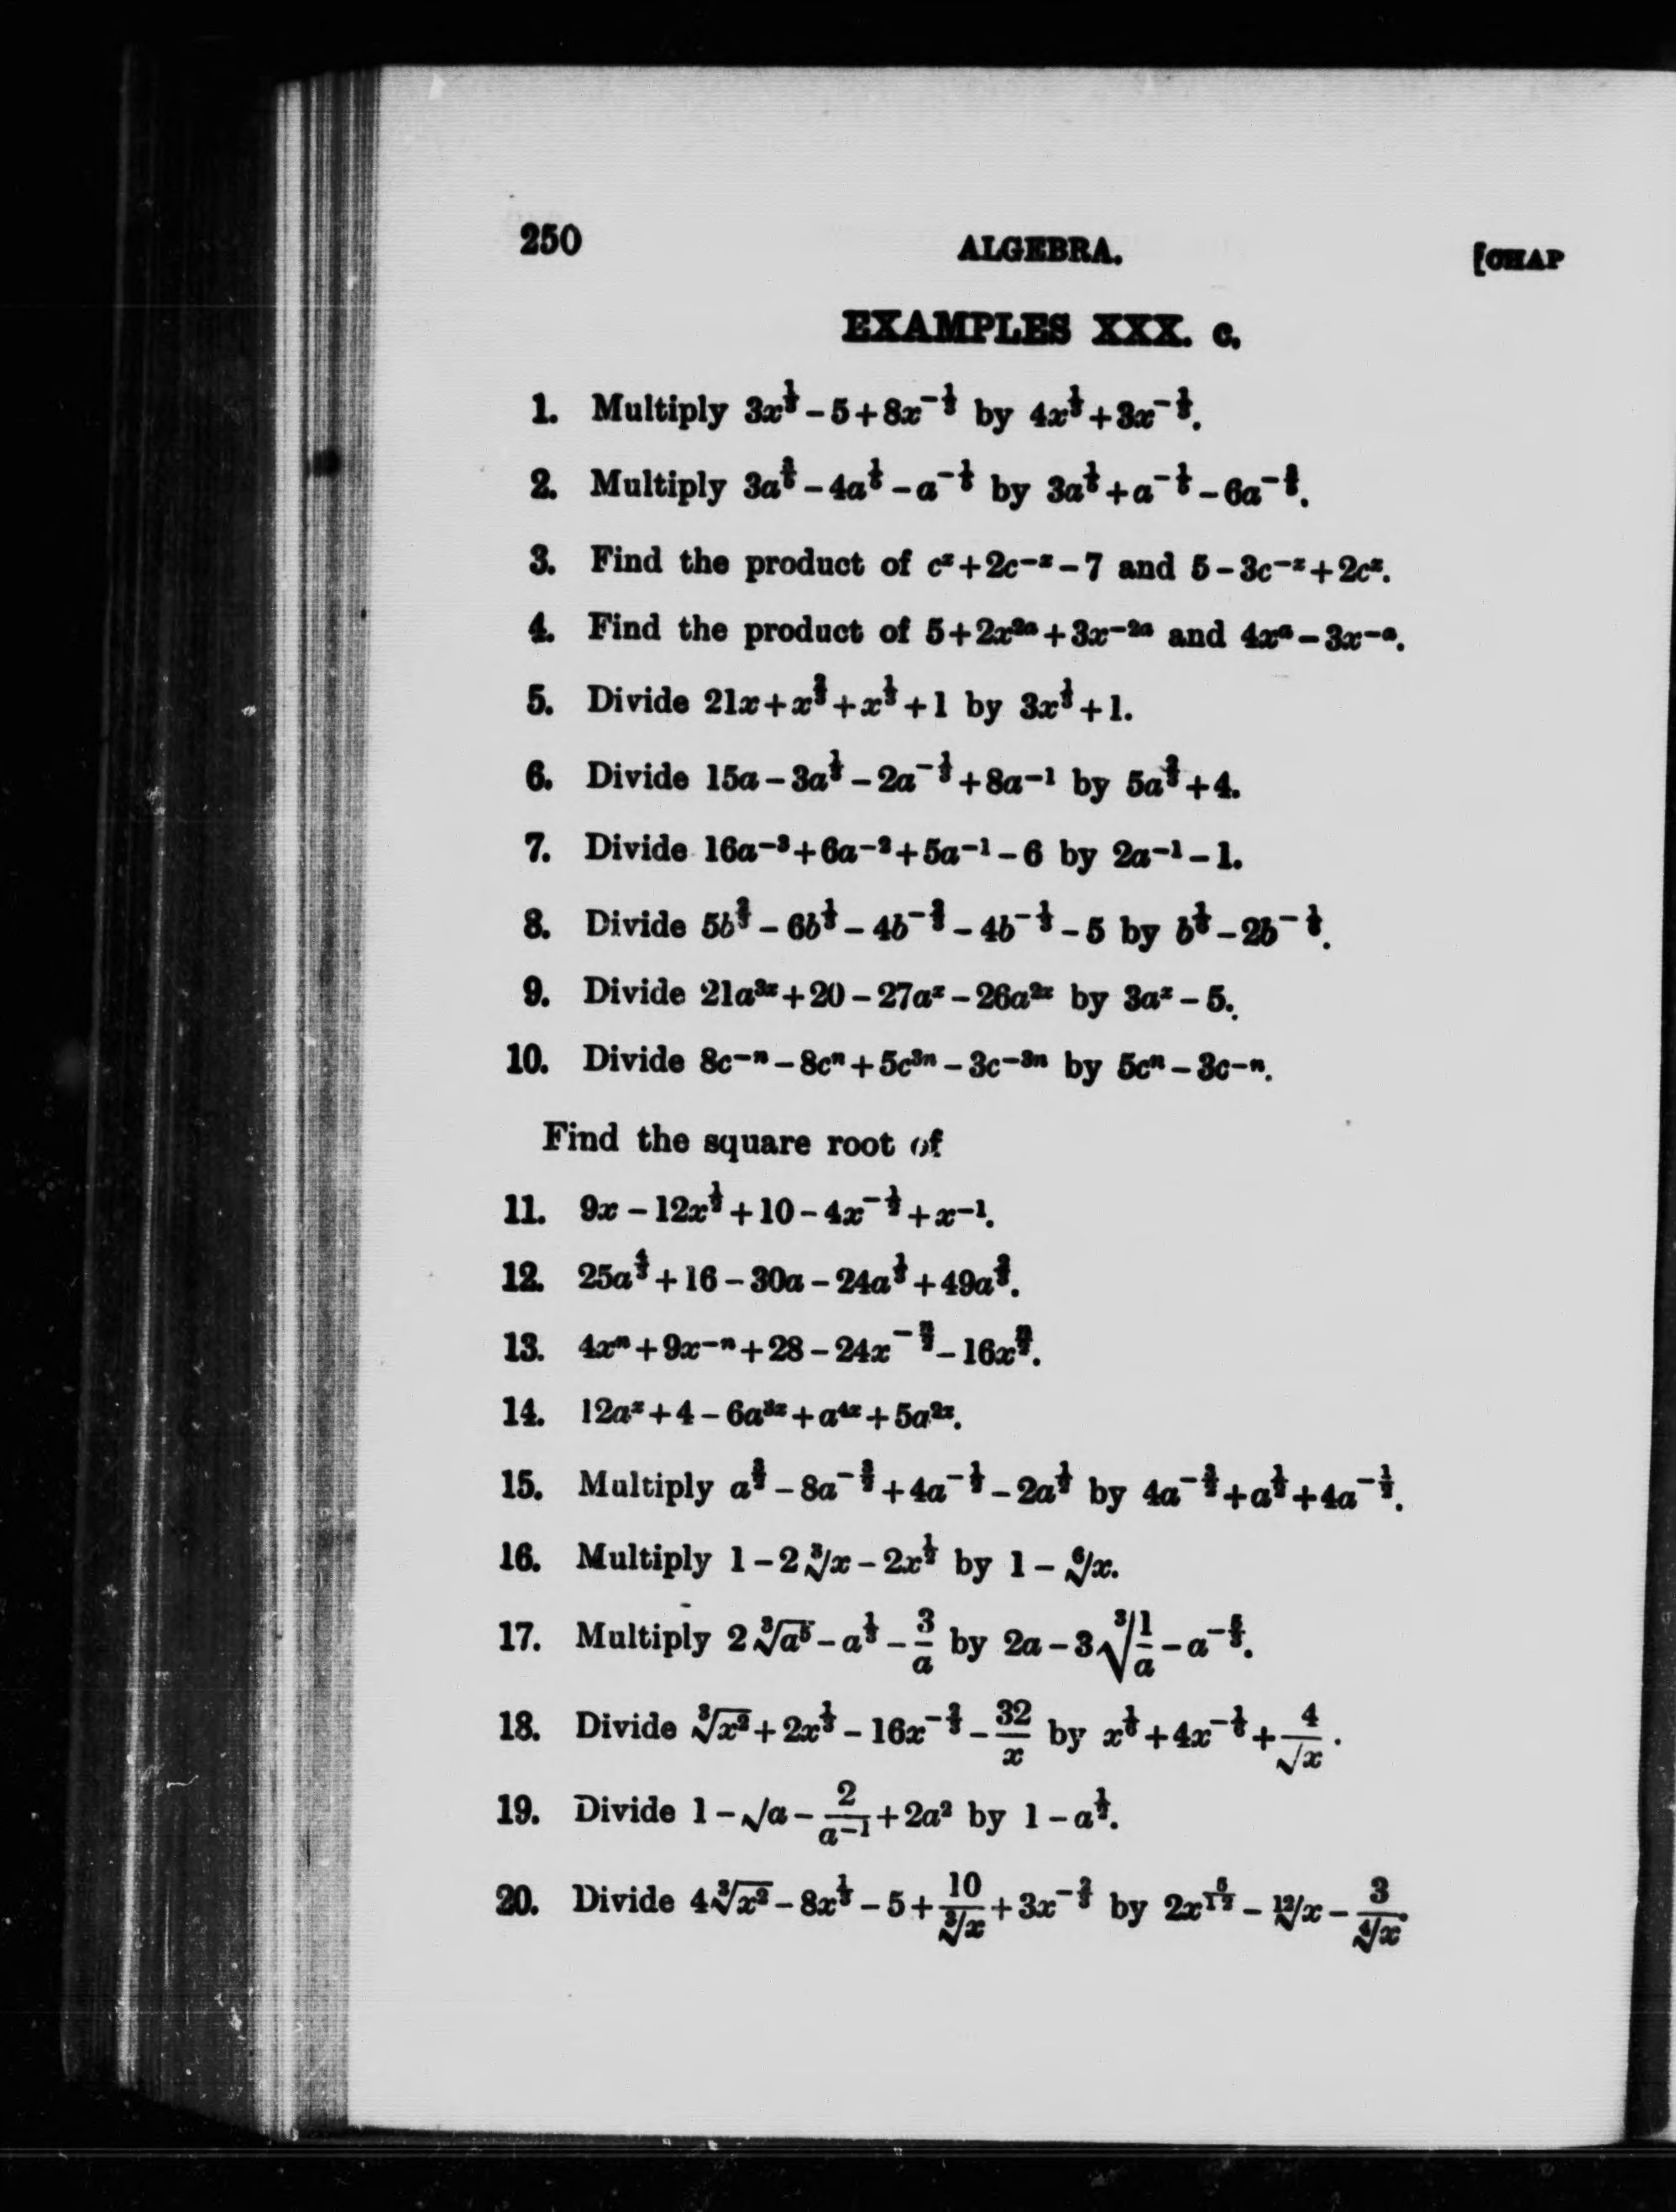 250 ALGEBRA. [CHAP
EXAMPLES XXX. c.
1. Multiply 3x^{1/3} – 5 + 8x^{-1/3} by 4x^{1/3} + 3x^{-1/3}.
2. Multiply 3a^{3/5} – 4a^{1/5} – a^{-1/5} by 3a^{1/5} + a^{-1/5} – 6a^{-3/5}.
3. Find the product of c^x + 2c^{-x} – 7 and 5 – 3c^{-x} + 2c^x.
4. Find the product of 5 + 2x^{2a} + 3x^{-2a} and 4x^a – 3x^{-a}.
5. Divide 21x + x^{2/3} + x^{1/3} + 1 by 3x^{1/3} + 1.
6. Divide 15a – 3a^{1/3} – 2a^{-1/3} + 8a^{-1} by 5a^{2/3} + 4.
7. Divide 16a^{-3} + 6a^{-2} + 5a^{-1} – 6 by 2a^{-1} – 1.
8. Divide 5b^{2/3} – 6b^{1/3} – 4b^{-2/3} – 4b^{-1/3} – 5 by b^{1/3} – 2b^{-1/3}.
9. Divide 21a^{3x} + 20 – 27a^x – 26a^{2x} by 3a^x – 5.
10. Divide 8c^{-n} – 8c^n + 5c^{3n} – 3c^{-3n} by 5c^n – 3c^{-n}.
Find the square root of
11. 9x – 12x^{1/2} + 10 – 4x^{-1/2} + x^{-1}.
12. 25a^{4/3} + 16 – 30a – 24a^{1/3} + 49a^{2/3}.
13. 4x^n + 9x^{-n} + 28 – 24x^{-n/2} – 16x^{n/2}.
14. 12a^x + 4 – 6a^{3x} + a^{4x} + 5a^{2x}.
15. Multiply a^{3/2} – 8a^{-3/2} + 4a^{-1/2} – 2a^{1/2} by 4a^{-3/2} + a^{1/2} + 4a^{-1/2}.
16. Multiply 1 – 2∛x – 2x^{1/2} by 1 – ⁶√x.
17. Multiply 2∛(a^5) – a^{1/3} – 3/a by 2a – 3∛(1/a) – a^{-5/3}.
18. Divide ∛(x^2) + 2x^{1/3} – 16x^{-2/3} – 32/x by x^{1/6} + 4x^{-1/6} + 4/√x.
19. Divide 1 – √a – 2/a^{-1} + 2a^2 by 1 – a^{1/2}.
20. Divide 4∛(x^2) – 8x^{1/3} – 5 + 10/∛x + 3x^{-2/3} by 2x^{5/12} – ¹²√x – 3/∜x.